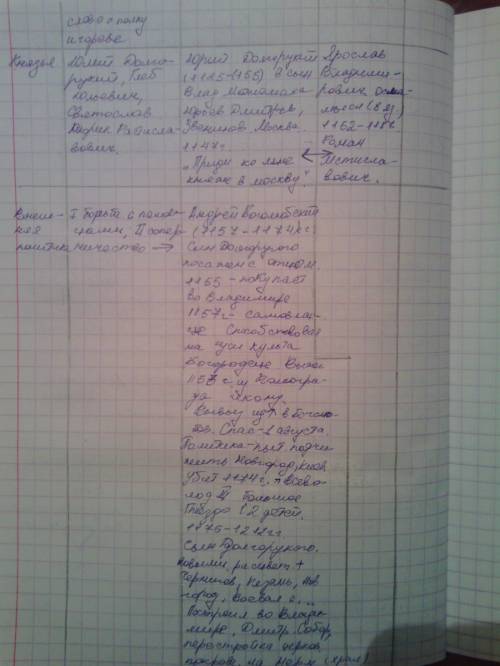 слово о полку
игореве
Князья
Юрий Долго-
рукий, Глеб
Юрьевич,
Святослав
Юрий Долгорукий
(1125-1155) 6 сын
Влад Мономаха
Юрьев Дмитров,
Звенигов Москва
1147г
"Приди ко мне
княже в москву".
Ярослав
Владими-
рович осмо-
мысл
1152-118
Роман
Мстисла-
вович.
Внеш-
няя
политика
I борьба с полов-
цами, II сопер-
ничество →
Андрей Боголюбский
(1157-1174гг
Сын Долгорукого
посажен с отцом.
1155 - покидает
во Владимире
1157г - самовлас-
Способствовал
культа
Богородске
1155 г из Вышгора-
да икону.
Спас-1 августа.
Политика-пыт. подчи-
нить Новгород, Киев
убит 1174г. Всево-
лод III Большое
Гнездо 12 детей.
1176-1212гг
Сын Долгорукого.
расцвет +
Чернигов, Рязань, Нов
город, Воевал с
Построил во Влади-
мире, Дмитр. Собор,
перестройка церков
покров. на Нерли (храм)